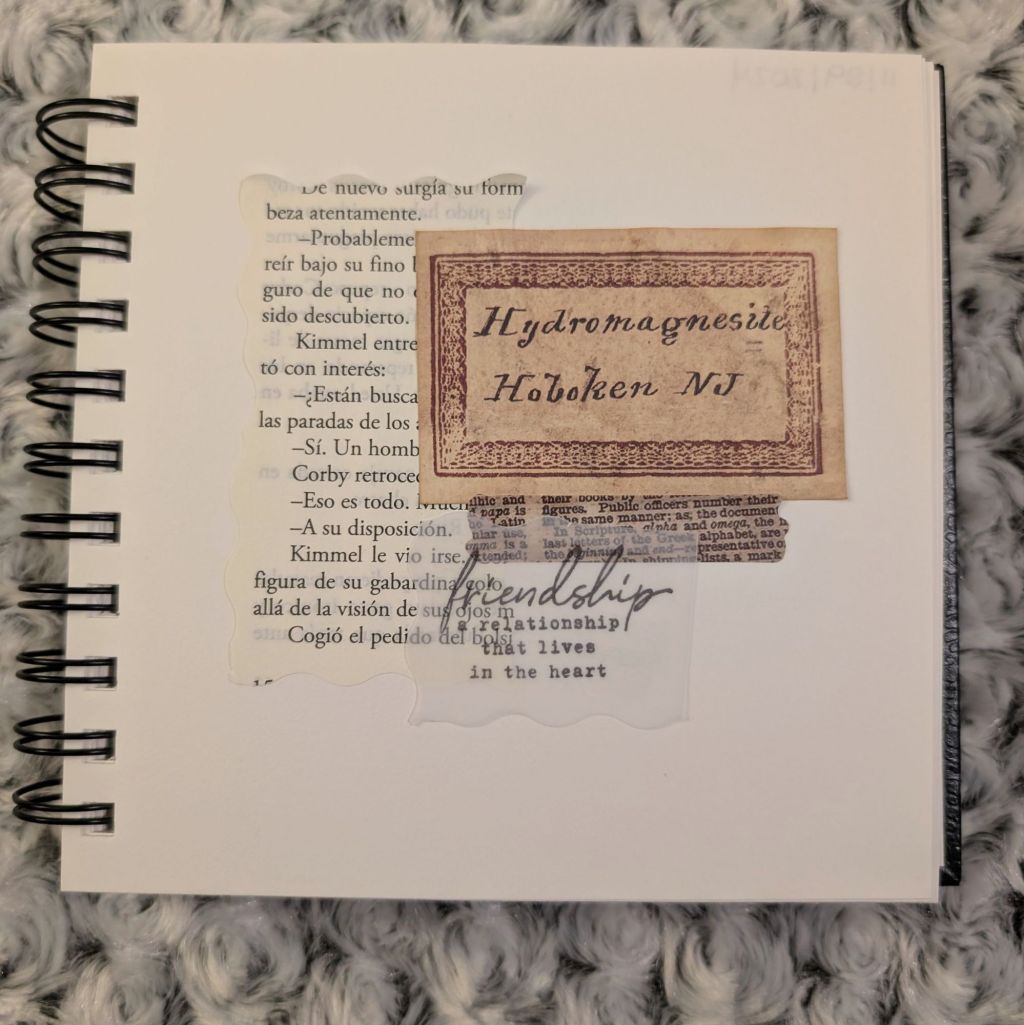 De nuevo surgía su form
beza atentamente.
–Probableme
reír bajo su fino
guro de que no
sido descubierto.
Kimmel entre
tó con interés:
–¿Están busca
las paradas de los
–Sí. Un homb
Corby retroced
–Eso es todo. Much
–A su disposición.
Kimmel le vio irse.
figura de su gabardina colo
allá de la visión de sus ojos m
Cogió el pedido del bolsi
Hydromagnesite
Hoboken NJ
and
papa is
Latin
use,
is a
their books by the
figures. Public officers number their
in the same manner; as, the document
In Scripture, alpha and omega, the
last letters of the Greek alphabet, are
the beginning and end—representative
In shipping lists, a mark
friendship
a relationship
that lives
in the heart